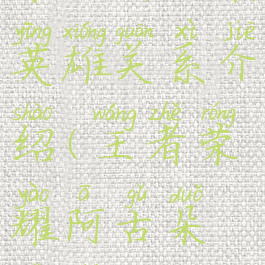 yīng xióng guān xì jiè
英雄关系介
shào wáng zhě róng
绍(王者荣
yào ā gǔ duǒ
耀阿古朵